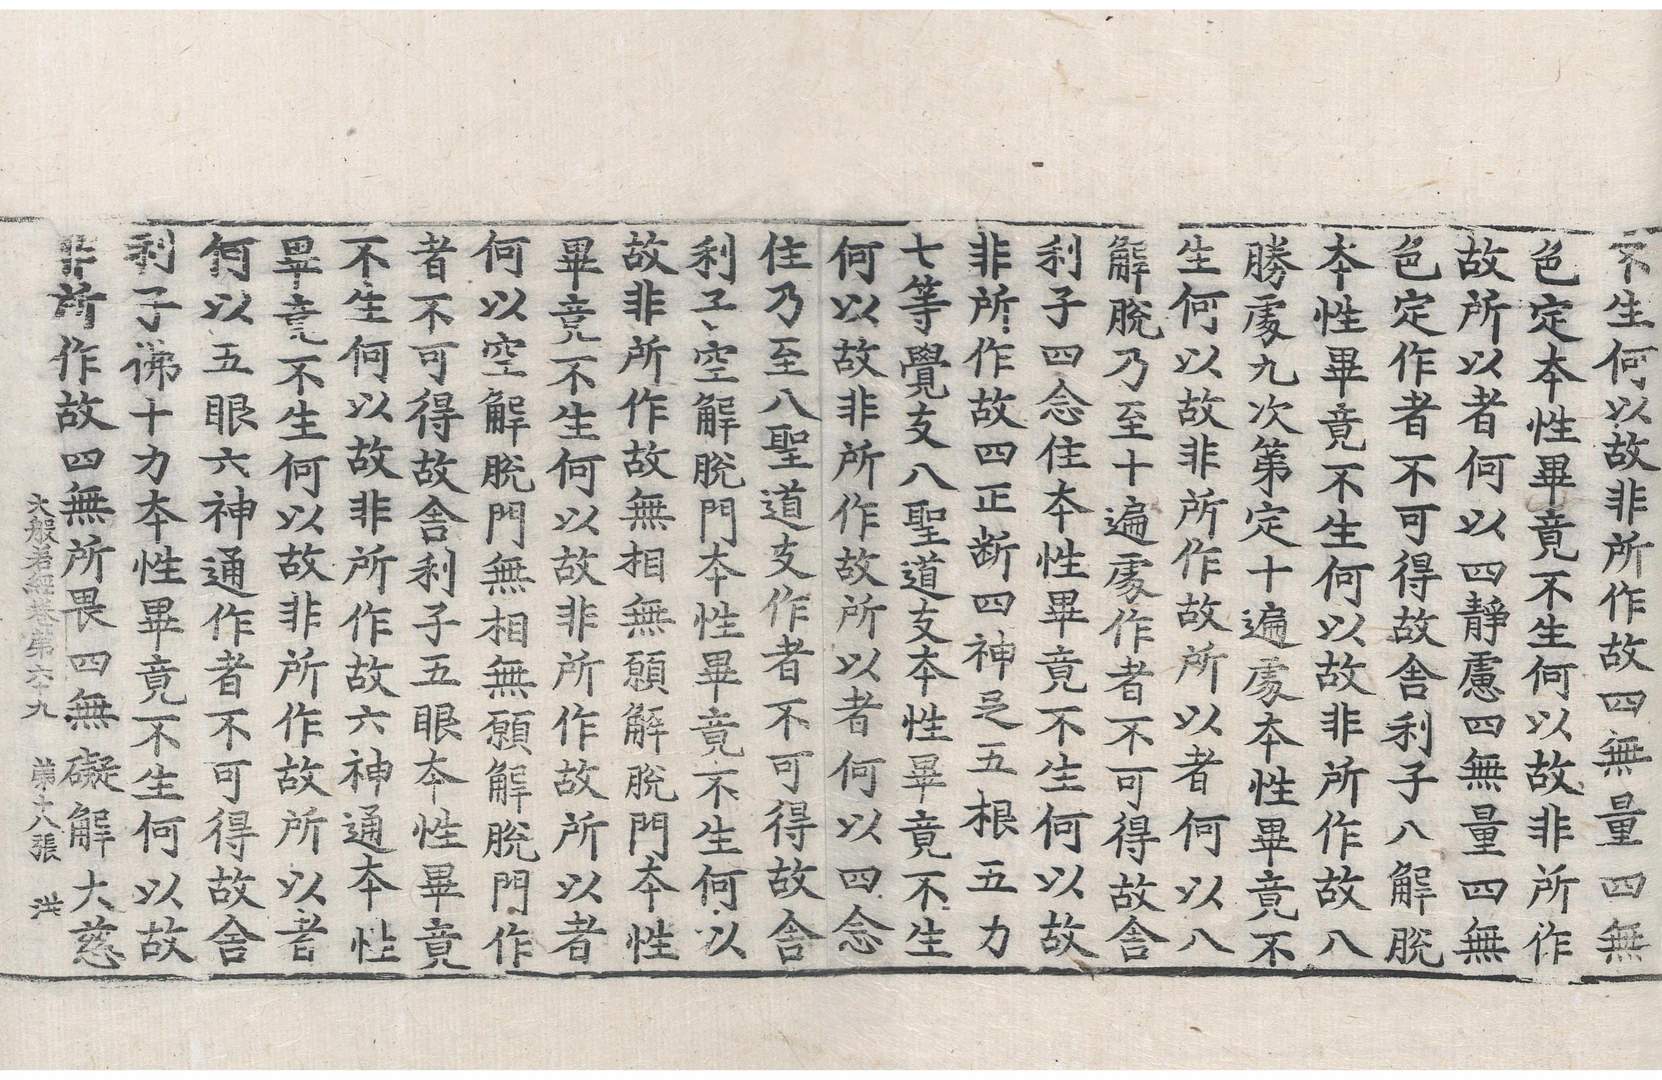 不生何以故非所作故四無量四無
色定本性畢竟不生何以故非所作
故所以者何以四靜慮四無量四無
色定作者不可得故舎利子八解脫
本性畢竟不生何以故非所作故八
勝處九次第定十遍處本性畢竟不
生何以故非所作故所以者何以八
解脫乃至十遍處作者不可得故舎
利子四念住本性畢竟不生何以故
非所作故四正断四神足五根五力
七等覺支八聖道支本性畢竟不生
何以故非所作故所以者何以四念
住乃至八聖道支作者不可得故舎
利子空解脫門本性畢竟不生何以
故非所作故無相無願解脫門本性
畢竟不生何以故非所作故所以者
何以空解脫門無相無願解脫門作
者不可得故舎利子五眼本性畢竟
不生何以故非所作故六神通本性
畢竟不生何以故非所作故所以者
何以五眼六神通作者不可得故舎
利子佛十力本性畢竟不生何以故
非所作故四無所畏四無礙解大慈
大般若經卷第六十九 第十八張 洪